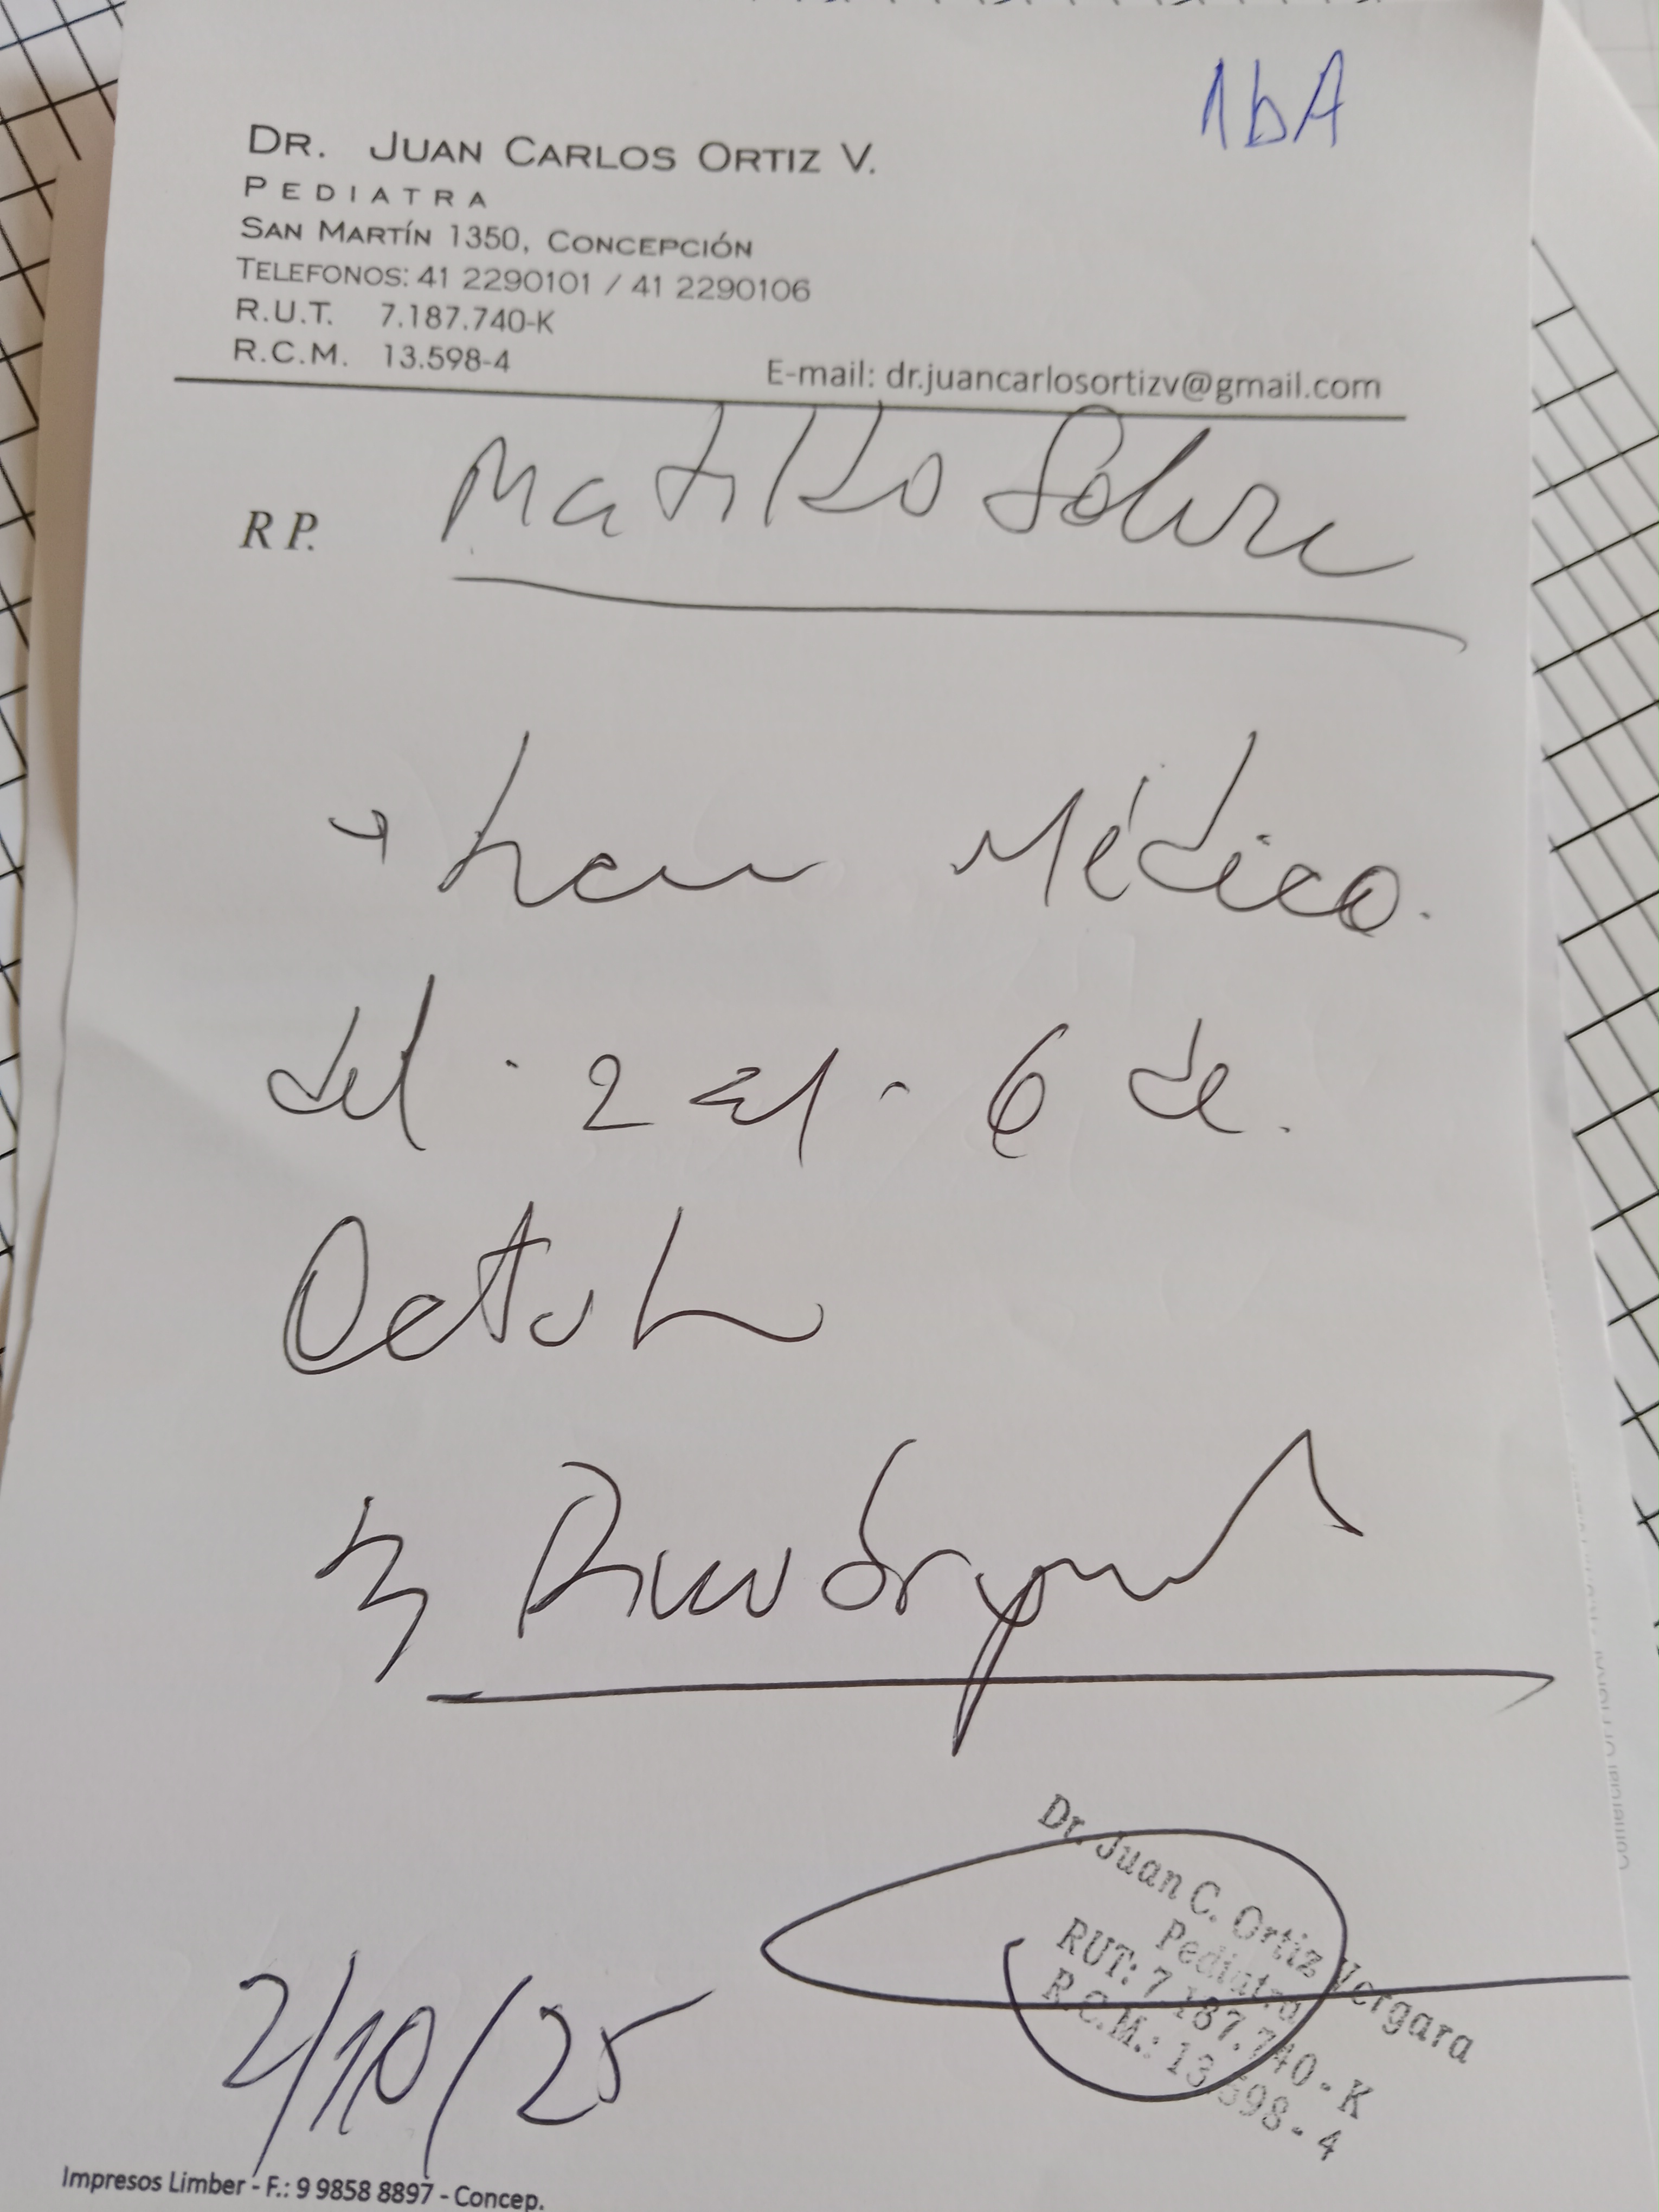 1bA
DR. JUAN CARLOS ORTIZ V.
PEDIATRA
SAN MARTÍN 1350, CONCEPCIÓN
TELEFONOS: 41 2290101 / 41 2290106
R.U.T. 7.187.740-K
R.C.M. 13.598-4
E-mail: dr.juancarlosortizv@gmail.com
RP.
Médico.
del - 2 al - 6 de.
Octubre
Dr. Juan C. Ortiz Vergara
Pediatra
RUT: 7.187.740-K
R.C.M.: 13.598-4
2/10/25
Impresos Limber - F.: 9 9858 8897 - Concep.